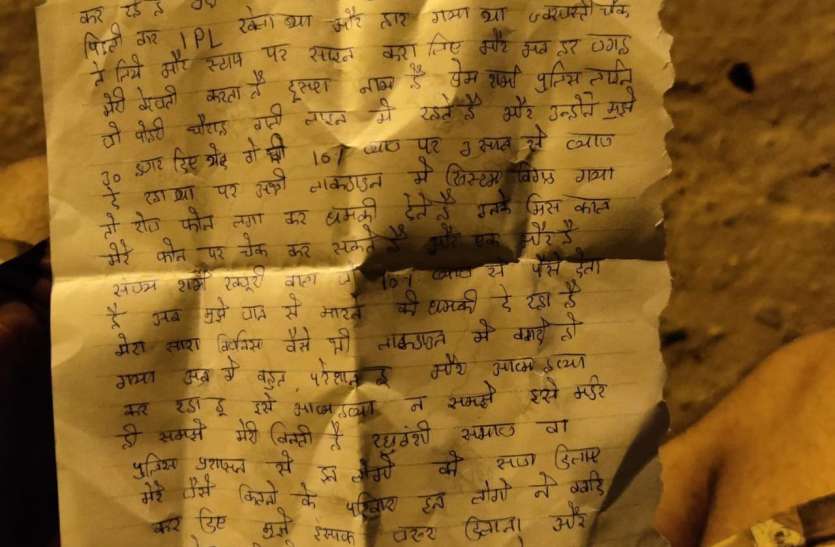 कर रहे है
पिटी कर IPL खेला था और हार गया था जबरदस्ती चैक
ले लिये और स्टाम्प पर साइन करा लिए और अब हर जगह
मेरी बेज्जती करता है इसका नाम है प्रेम शर्मा पुलिस लाईन
जो पोहरी चौराह वाली लाइन में रहते है और उन्होने मुझे
30 हजार दिए थे 10% ब्याज पर 3 साल से ब्याज
दे रहा था पर अभी लाकडाउन में सिस्टम बिगड़ गया
तो रोज फोन लगा कर धमकी देते है उनके मिस काल
मेरे फोन पर चेक कर सकते है और एक और है
शर्मा खजूरी वाला जो 10% ब्याज से पैसे देता
है अब मुझे जान से मारने की धमकी दे रहा है
मेरा सारा बिजनिस वैसे भी लाकडाउन में बर्बाद हो
गया अब में बहुत परेशान हू और आत्महत्या
कर रहा हू इसे आत्महत्या न समझे इसे मर्डर
ही समझे मेरी विनती है रघुवंशी समाज वा
पुलिस प्रशासन से इन लोगो को सजा दिलाए
मेरे जैसे कितनो के परिवार इन लोगो ने बर्बाद
कर दिए मुझे इंसाफ जरूर दिलाना और